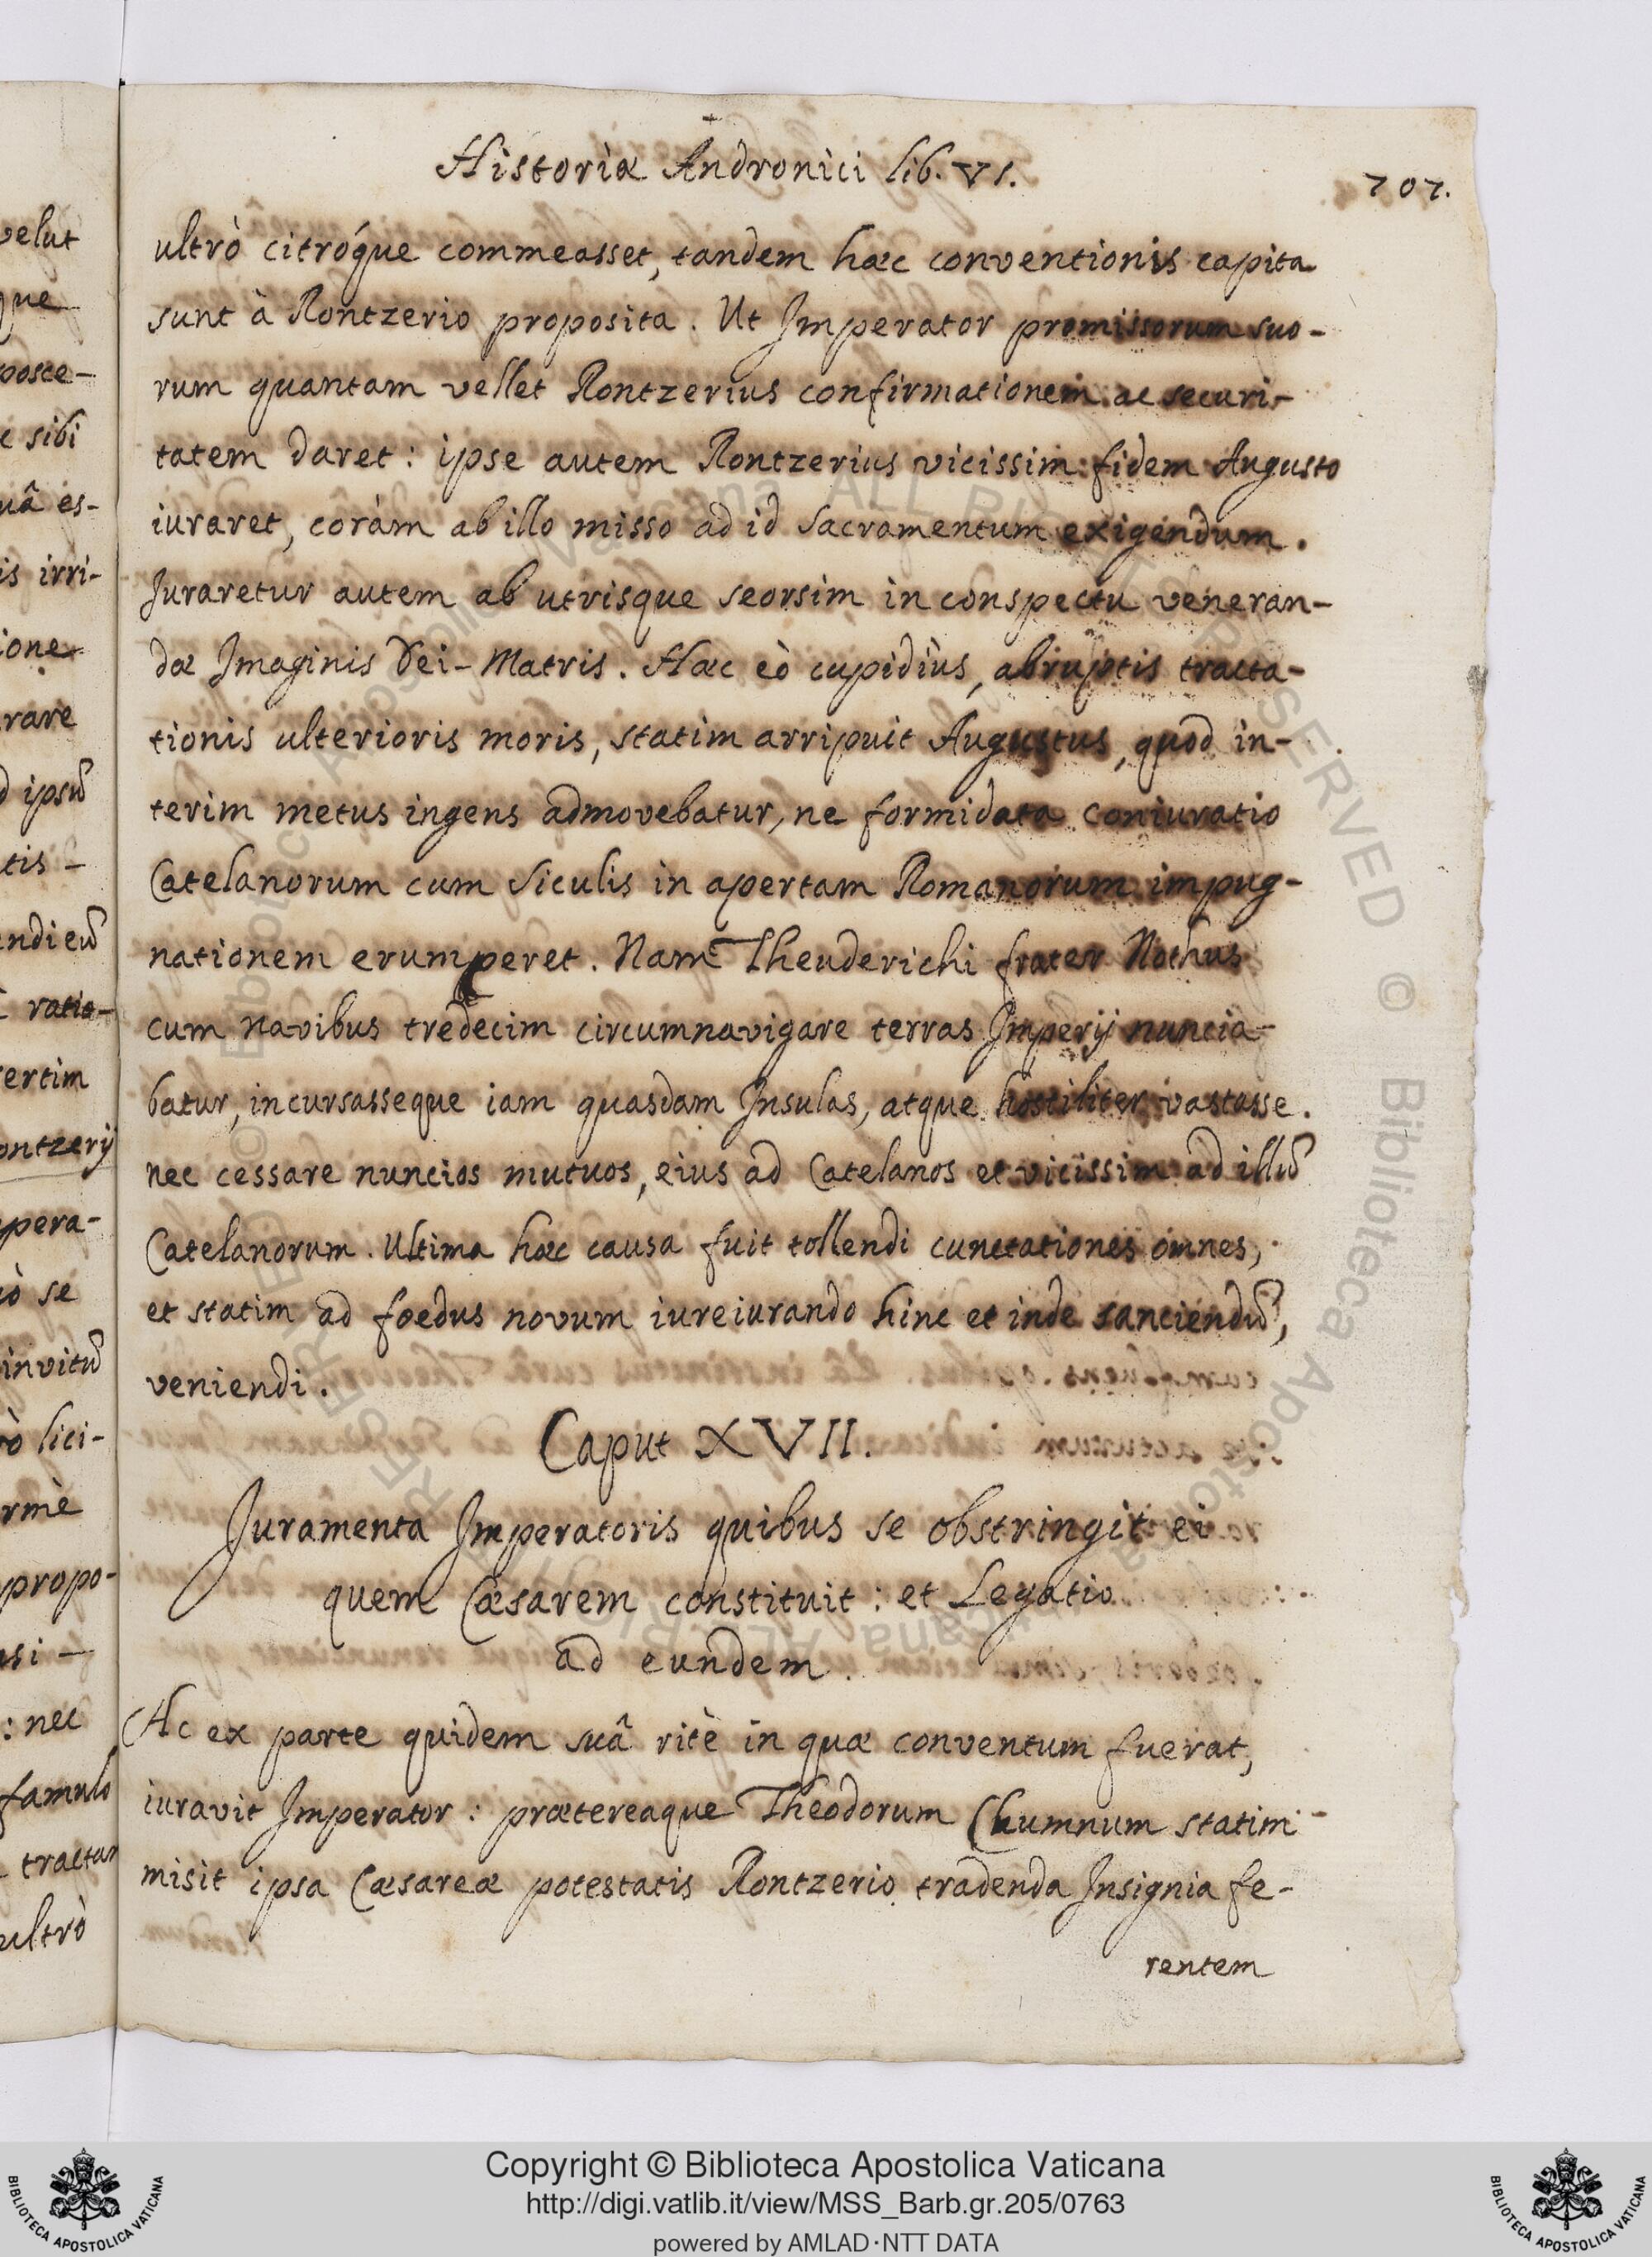 Historiæ Andronici lib. VI.
707.
ultrò citróque commeasset, tandem hæc conventionis capita
sunt à Rontzerio proposita. Ut Imperator promissorum suo-
rum quantam vellet Rontzerius confirmationem ac securi-
tatem daret: ipse autem Rontzerius vicissim fidem Augusto
iuraret, coràm ab illo misso ad id sacramentum exigendum.
Juraretur autem ab utrisque seorsim in conspectu veneran-
dæ Imaginis Dei-Matris. Hæc eò cupidiùs, abruptis tracta-
tionis ulterioris moris, statim arripuit Augustus, quod in-
terim metus ingens admovebatur, ne formidata coniuratio
Catelanorum cum Siculis in apertam Romanorum impug-
nationem erumperet. Nam Theuderichi frater Nothus
cum navibus tredecim circumnavigare terras Imperij nuncia-
batur, incursasseque iam quasdam Insulas, atque hostiliter vastasse.
nec cessare nuncios mutuos, eius ad Catelanos et vicissim ad illũ
Catelanorum. Ultima hæc causa fuit tollendi cunctationes omnes,
et statim ad foedus novum iureiurando hinc et inde sanciendũ,
veniendi.
Caput XVII.
Juramenta Imperatoris quibus se obstringit ei
quem Cæsarem constituit: et Legatio
ad eundem.
Ac ex parte quidem suâ ritè in quæ conventum fuerat,
iuravit Imperator: prætereaque Theodorum Chumnum statim
misit ipsa Cæsareæ potestatis Rontzerio tradenda Insignia fe-
rentem
velut
que
posce-
c sibi
uâ es-
is irri-
ione
rare
d ipsũ
tis-
endi eũ
ratio-
ertim
ontzerij
pera-
ò se
invitũ
ò lici-
rmè
propo-
si-
: nec
famulo
tractur
ultrò
Copyright © Biblioteca Apostolica Vaticana
http://digi.vatlib.it/view/MSS_Barb.gr.205/0763
powered by AMLAD·NTT DATA
BIBLIOTECA APOSTOLICA VATICANA
BIBLIOTECA APOSTOLICA VATICANA